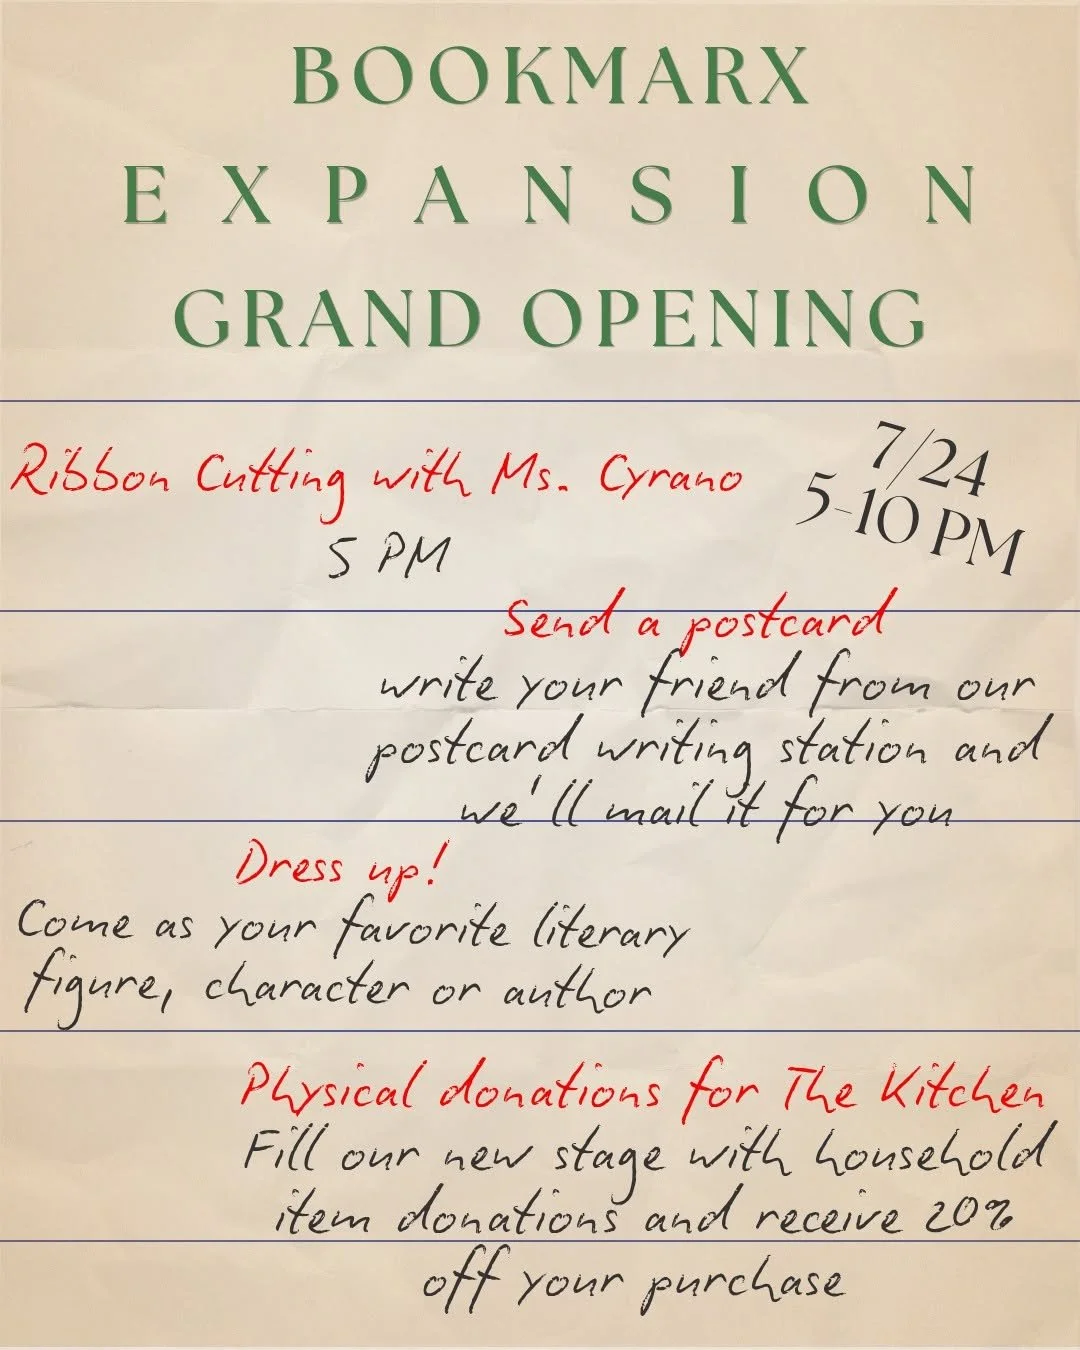 BOOKMARX
EXPANSION
GRAND OPENING
Ribbon Cutting with Ms. Cyrano
5 PM
7/24
5-10 PM
Send a postcard
write your friend from our
postcard writing station and
we'll mail it for you
Dress up!
Come as your favorite literary
figure, character or author
Physical donations for The Kitchen
Fill our new stage with household
item donations and receive 20%
off your purchase